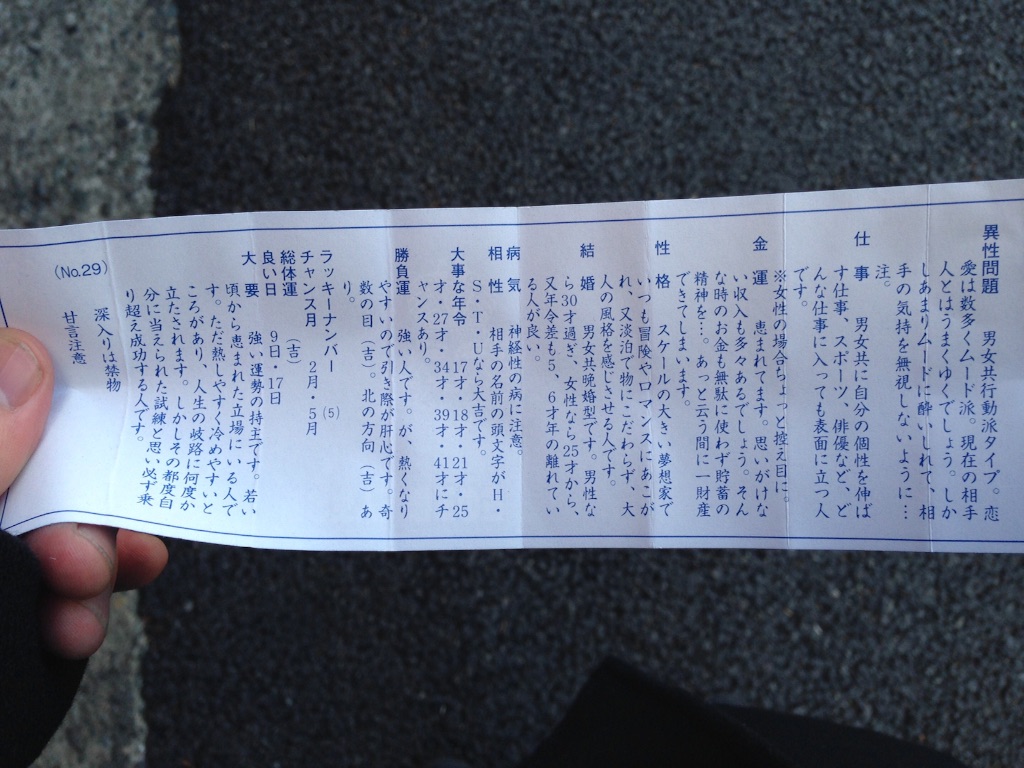 異性問題　男女共行動派タイプ。恋
愛は数多くムード派。現在の相手
人とはうまくゆくでしょう。しか
しあまりムードに酔いしれて、相
手の気持を無視しないように…
注。
仕事　男女共に自分の個性を伸ば
す仕事、スポーツ、俳優など、ど
んな仕事に入っても表面に立つ人
です。
※女性の場合ちょっと控え目に。
金運　恵まれてます。思いがけな
い収入も多々あるでしょう。そん
な時のお金も無駄に使わず貯蓄の
精神を…。あっと云う間に一財産
できてしまいます。
性格　スケールの大きい夢想家で
いつも冒険やロマンスにあこが
れ、又淡泊で物にこだわらず、大
人の風格を感じさせる人です。
結婚　男女共晩婚型です。男性な
ら30才過ぎ、女性なら25才から、
又年令差も5、6才年の離れてい
る人が良い。
病気　神経性の病に注意。
相性　相手の名前の頭文字がH・
S・T・Uなら大吉です。
大事な年令　17才・18才・21才・25
才・27才・34才・39才・41才にチ
ャンスあり。
勝負運　強い人です。が、熱くなり
やすいので引き際が肝心です。奇
数の目（吉）。北の方向（吉）あ
り。
ラッキーナンバー　(5)
チャンス月　2月・5月
総体運　（吉）
良い日　9日・17日
大要　強い運勢の持主です。若い
頃から恵まれた立場にいる人で
す。ただ熱しやすく冷めやすいと
ころがあり、人生の岐路に何度か
立たされます。しかしその都度自
分に当えられた試練と思い必ず乗
り超え成功する人です。
深入りは禁物
甘言注意
(No.29)